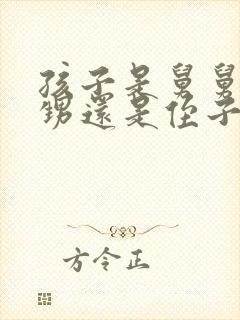 孩子是舅舅
甥還是侄子
方令正